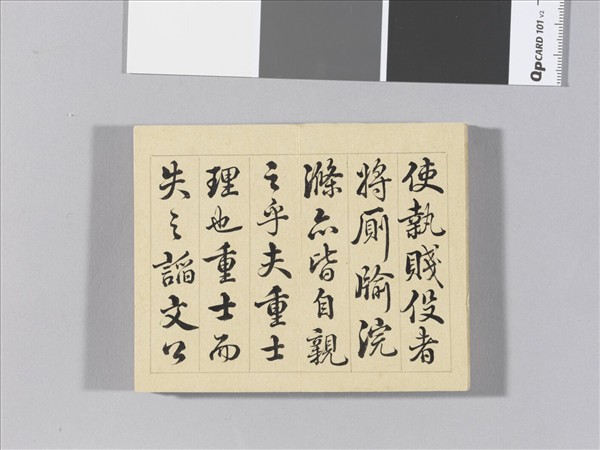 使執賤役者
將厠腧浣
滌亦皆自親
之乎夫重士
理也重士而
失之謟文公
QPCARD 101 v2